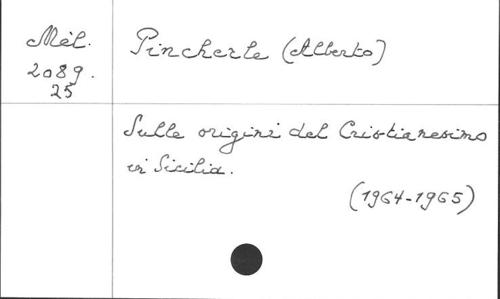 Mél.
2089.
25
Pincherle (Alberto)
Sulle origini del Cristianesimo
in Sicilia.
(1964-1965)